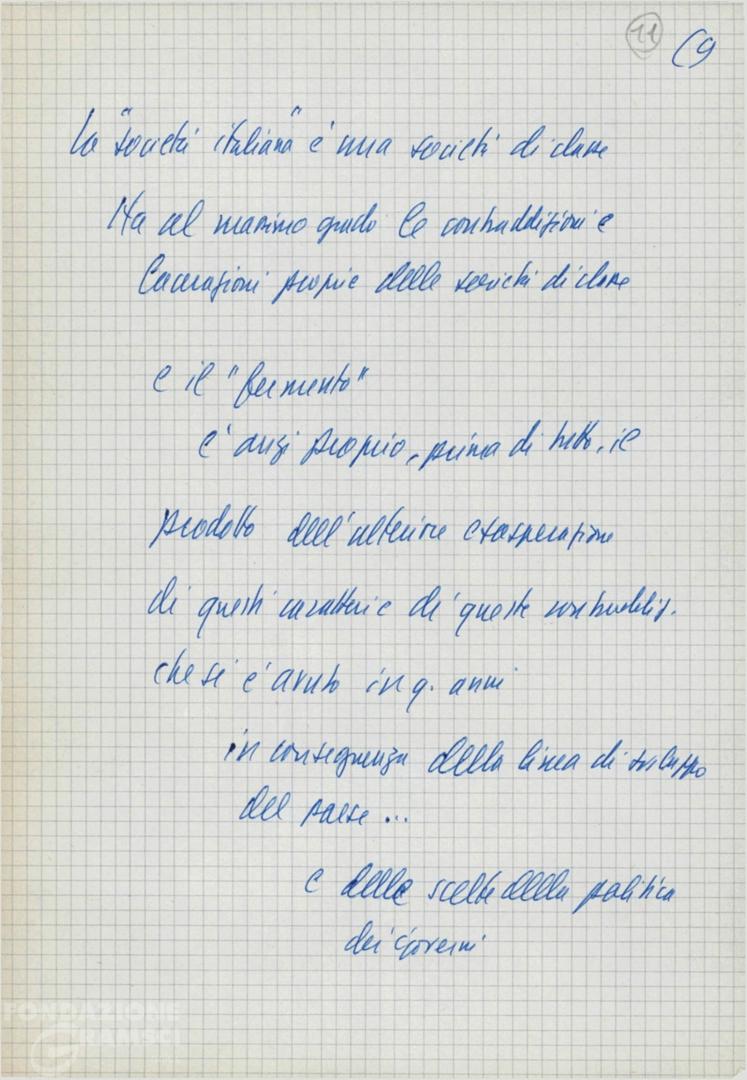 11 (9
La "società italiana" è una società di classe
Ha al massimo grado le contraddizioni e
lacerazioni proprie delle società di classe
e il "fermento"
è anzi proprio, prima di tutto, il
prodotto dell'ulteriore esasperazione
di questi caratteri e di queste contraddiz.
che si è avuto in q. anni
in conseguenza della linea di sviluppo
del paese ...
e delle scelte della politica
dei Governi
FONDAZIONE
GRAMSCI